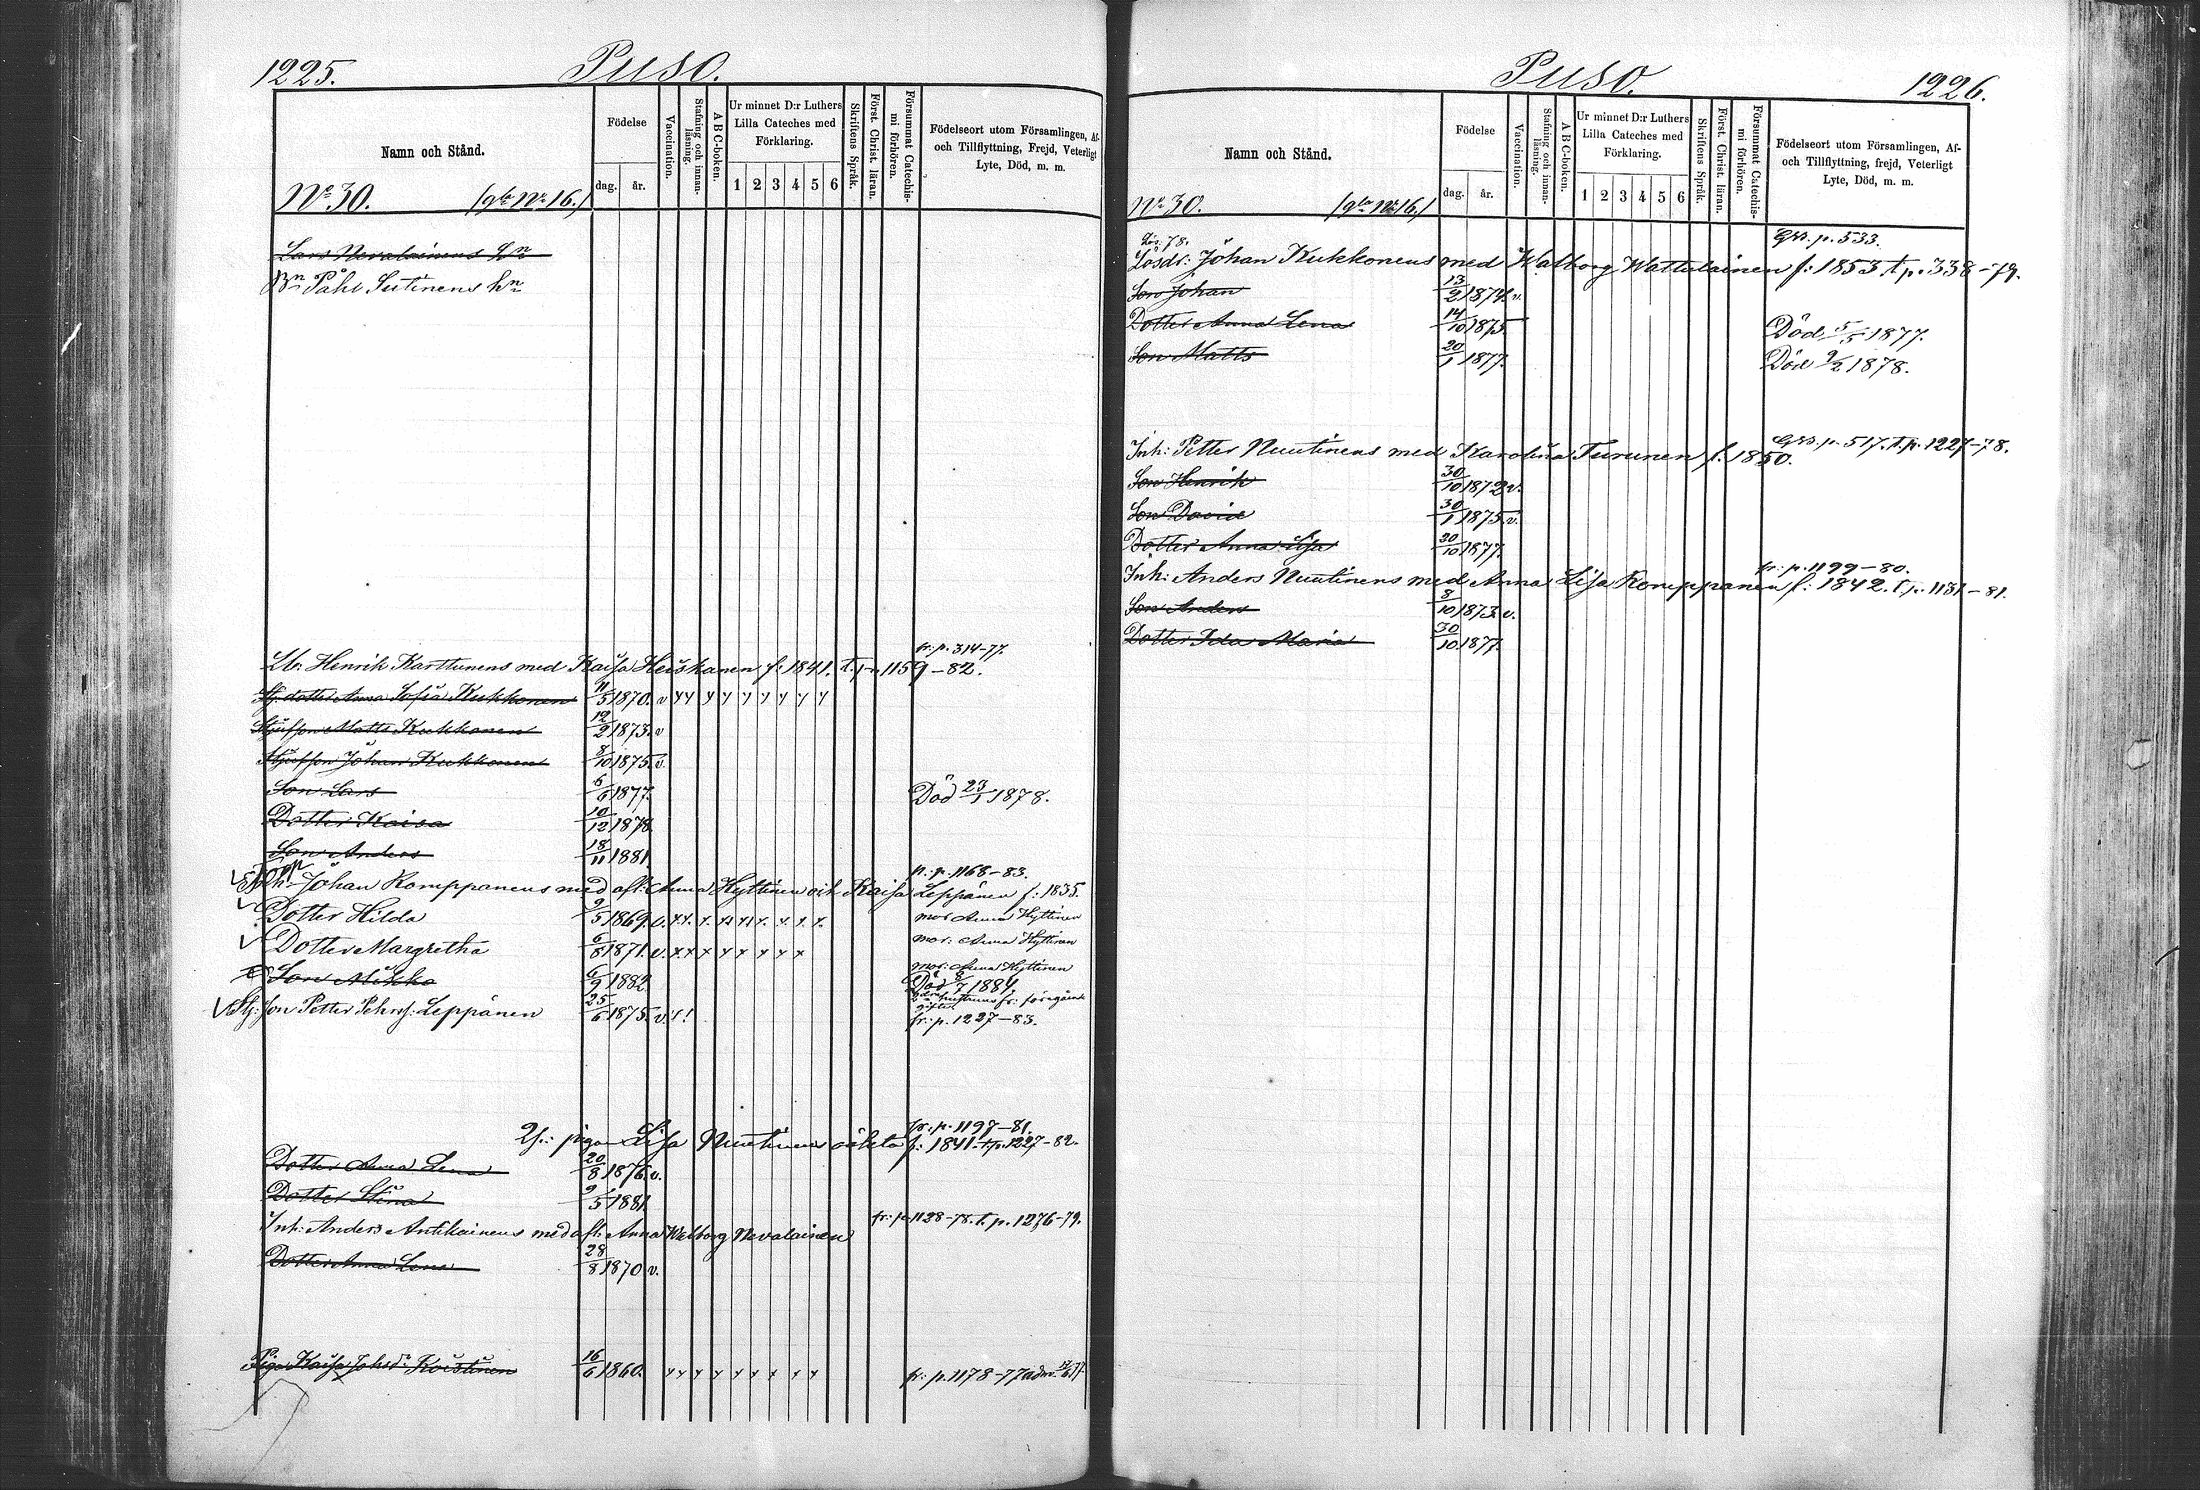 1225.
Puso.
Namn och Stånd.
Födelse
dag. år.
Vaccination.
Stafning och innanläsning.
A B C-boken.
Ur minnet D:r Luthers Lilla Cateches med Förklaring.
1 2 3 4 5 6
Skriftens Språk.
Först. Christ. läran.
Försummat Catechismi förhören.
Födelseort utom Församlingen, Af- och Tillflyttning, Frejd, Veterligt Lyte, Död, m. m.
No 30. (gla No 16.)
Lars Nevalainens hn
Bn Påhl Sutinens hn
fr: p. 314-77.
Lbr. Henrik Karttunens med Kaisa Heiskanen f: 1841. t. p. 1159-82.
Stj. dotter Anna Sofia Kukkonen 11/5 1870. v
Stjufson Matts Kukkonen 12/2 1873. v
Stjufson Johan Kukkonen 8/10 1875. v.
Son Lars 6/6 1877. Död 23/1 1878.
Dotter Kaisa 10/12 1878.
Son Anders 18/11 1881.
fr. p. 1168-83.
Johan Komppanens med afl: Anna Hyttinen och Kaisa Leppänen f: 1835.
Dotter Hilda 9/5 1869. v. mor Anna Hyttinen
Dotter Margretha 6/8 1871. v. mor: Anna Hyttinen
mor: Anna Hyttinen
Son Mikko 6/9 1882. Död 8/7 1884.
Stj: son Petter Pehrs: Leppänen 25/6 1875. v.
fr: p. 1227-83.
fr: p. 1197-81.
pigan Lisa Nuutinens oäkta f: 1841. t. p. 1227-82.
Dotter Anna Lena 20/8 1876. v.
Dotter Stina 9/5 1881.
fr: p. 1128-78. t. p. 1276-79.
Inh: Anders Antikainens med afl: Anna Walborg Nevalainen
Dotter Anna Lena 28/8 1870 v.
Piga Kaisa Johsdr Koistinen 16/6 1860. fr: p. 1178-77
Puso.
1226.
Namn och Stånd.
Födelse
dag. år.
Vaccination.
Stafning och innanläsning.
A B C-boken.
Ur minnet D:r Luthers Lilla Cateches med Förklaring.
1 2 3 4 5 6
Skriftens Språk.
Först. Christ. läran.
Försummat Catechismi förhören.
Födelseort utom Församlingen, Af- och Tillflyttning, frejd, Veterligt Lyte, Död, m. m.
No 30. (gla No 16.)
p. 533.
Lösdr: Johan Kukkonens med Walborg Wattulainen f: 1853 t. p. 338-79.
Son Johan 13/2 1874. v.
Dotter Anna Lena 14/10 1875 Död 5/5 1877.
Son Matts 20/1 1877. Död 9/2 1878.
p. 517. t. p. 1227-78.
Inh: Petter Nuutinens med Karolina Turunen f: 1850.
Son Henrik 30/10 1872 v.
Son David 30/1 1875. v.
Dotter Anna Lisa 30/10 1877.
fr: p. 1199-80.
Inh: Anders Nuutinens med Anna Lisa Komppanen f: 1842. t. p. 1131-81.
Son Anders 8/10 1873. v.
Dotter Ida Maria 30/10 1877.